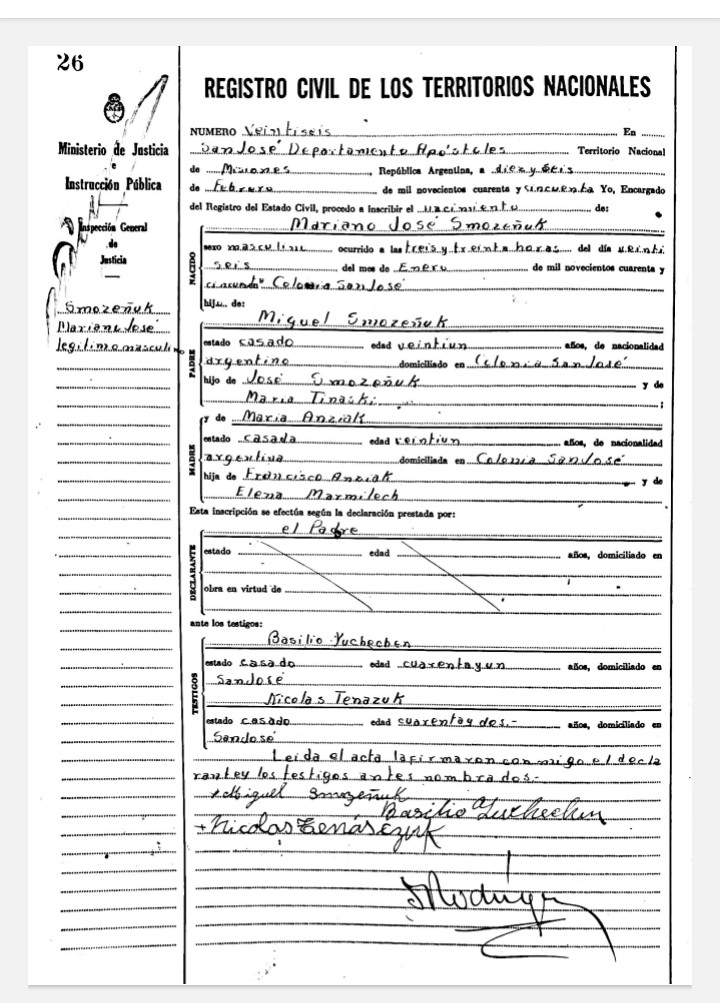 26
REGISTRO CIVIL DE LOS TERRITORIOS NACIONALES
Ministerio de Justicia
e
Instrucción Pública
Inspección General
de
Justicia
Smozeñuk
Mariano José
legitimo masculino
NUMERO Veintiseis En
San José Departamento Apóstoles Territorio Nacional
de Misiones, República Argentina, a diez y seis
de Febrero de mil novecientos cuarenta y cincuenta Yo, Encargado
del Registro del Estado Civil, procedo a inscribir el nacimiento de:
Mariano José Smozeñuk
NACIDO
sexo masculino ocurrido a las treis y treinta horas del día veinti
seis del mes de Enero de mil novecientos cuarenta y
cincuenta Colonia San José
hijo de:
Miguel Smozeñuk
PADRE
estado casado edad veintiun años, de nacionalidad
argentino domiciliado en Colonia San José
hijo de José Smozeñuk y de
Maria Tinaski ;
y de Maria Anziak
MADRE
estado casada edad veintiun años, de nacionalidad
argentina domiciliada en Colonia San José
hija de Francisco Anziak y de
Elena Marmilech
Esta inscripción se efectúa según la declaración prestada por:
el Padre
DECLARANTE
estado edad años, domiciliado en
obra en virtud de
ante los testigos:
Basilio Yuchechen
TESTIGOS
estado casado edad cuarenta y un años, domiciliado en
San José
Nicolas Tenazuk
estado casado edad cuarenta y dos.- años, domiciliado en
San José
Leida el acta la firmaron con migo el decla
rante y los testigos antes nombrados.-
+ Miguel Smozeñuk
Basilio Yuchechen
+ Nicolas Tenaszuk